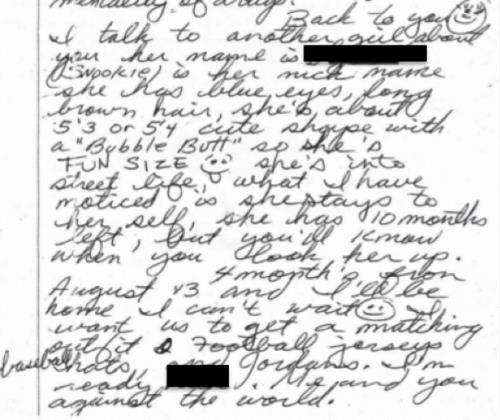 mentality of always.
Back to you
I talk to another girl about
you her name is
(Snookie) is her nick name
she has blue eyes, long
brown hair, she's about
5'3 or 5'4 cute shape with
a "Bubble Butt" so she's
FUN SIZE she's into
street life, what I have
noticed is she stays to
her self, she has 10 months
left, but you'll know
when you look her up.
4 month's from
August 13 and I'll be
home I can't wait I
want us to get a matching
outfit & Football jerseys
baseball hats, and Jordans. I'm
ready . Me and you
against the world.